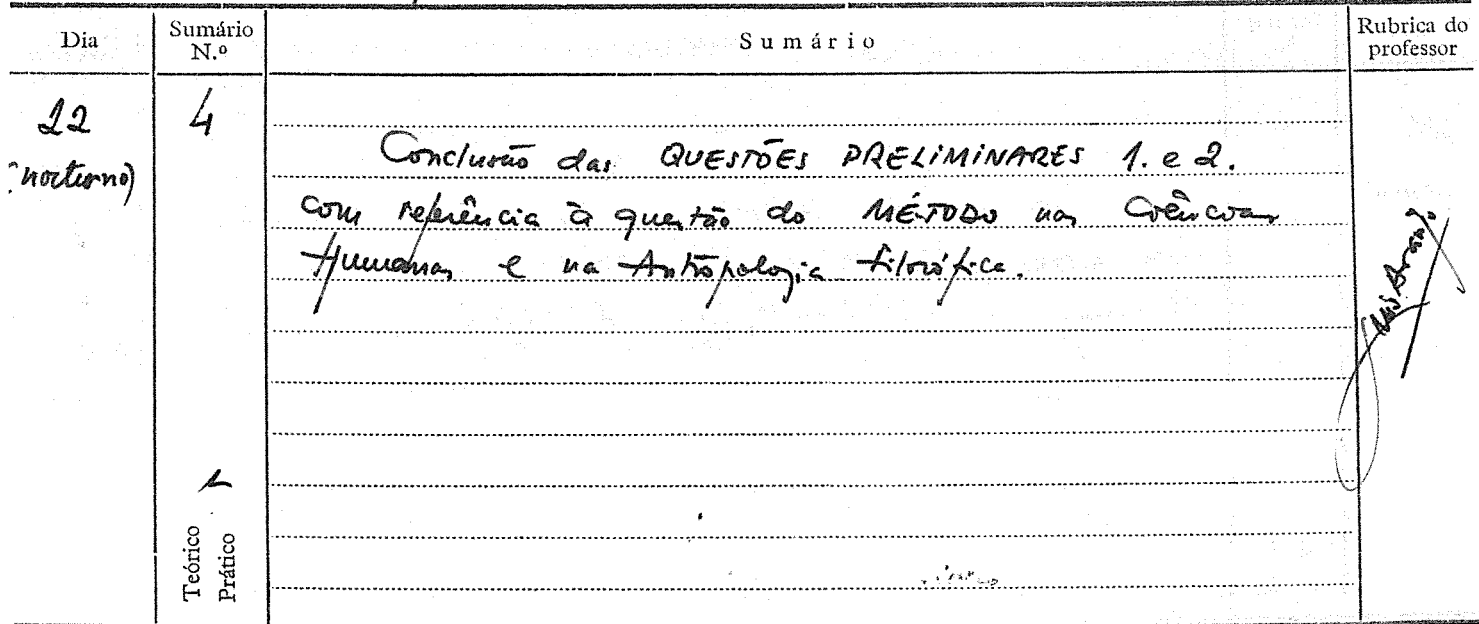 Dia
Sumário N.º
Sumário
Rubrica do professor
22
(nocturno)
4
Conclusão das QUESTÕES PRELIMINARES 1. e 2.
com referência à questão do MÉTODO nas Ciências
Humanas e na Antropologia Filosófica.
Teórico
Prático